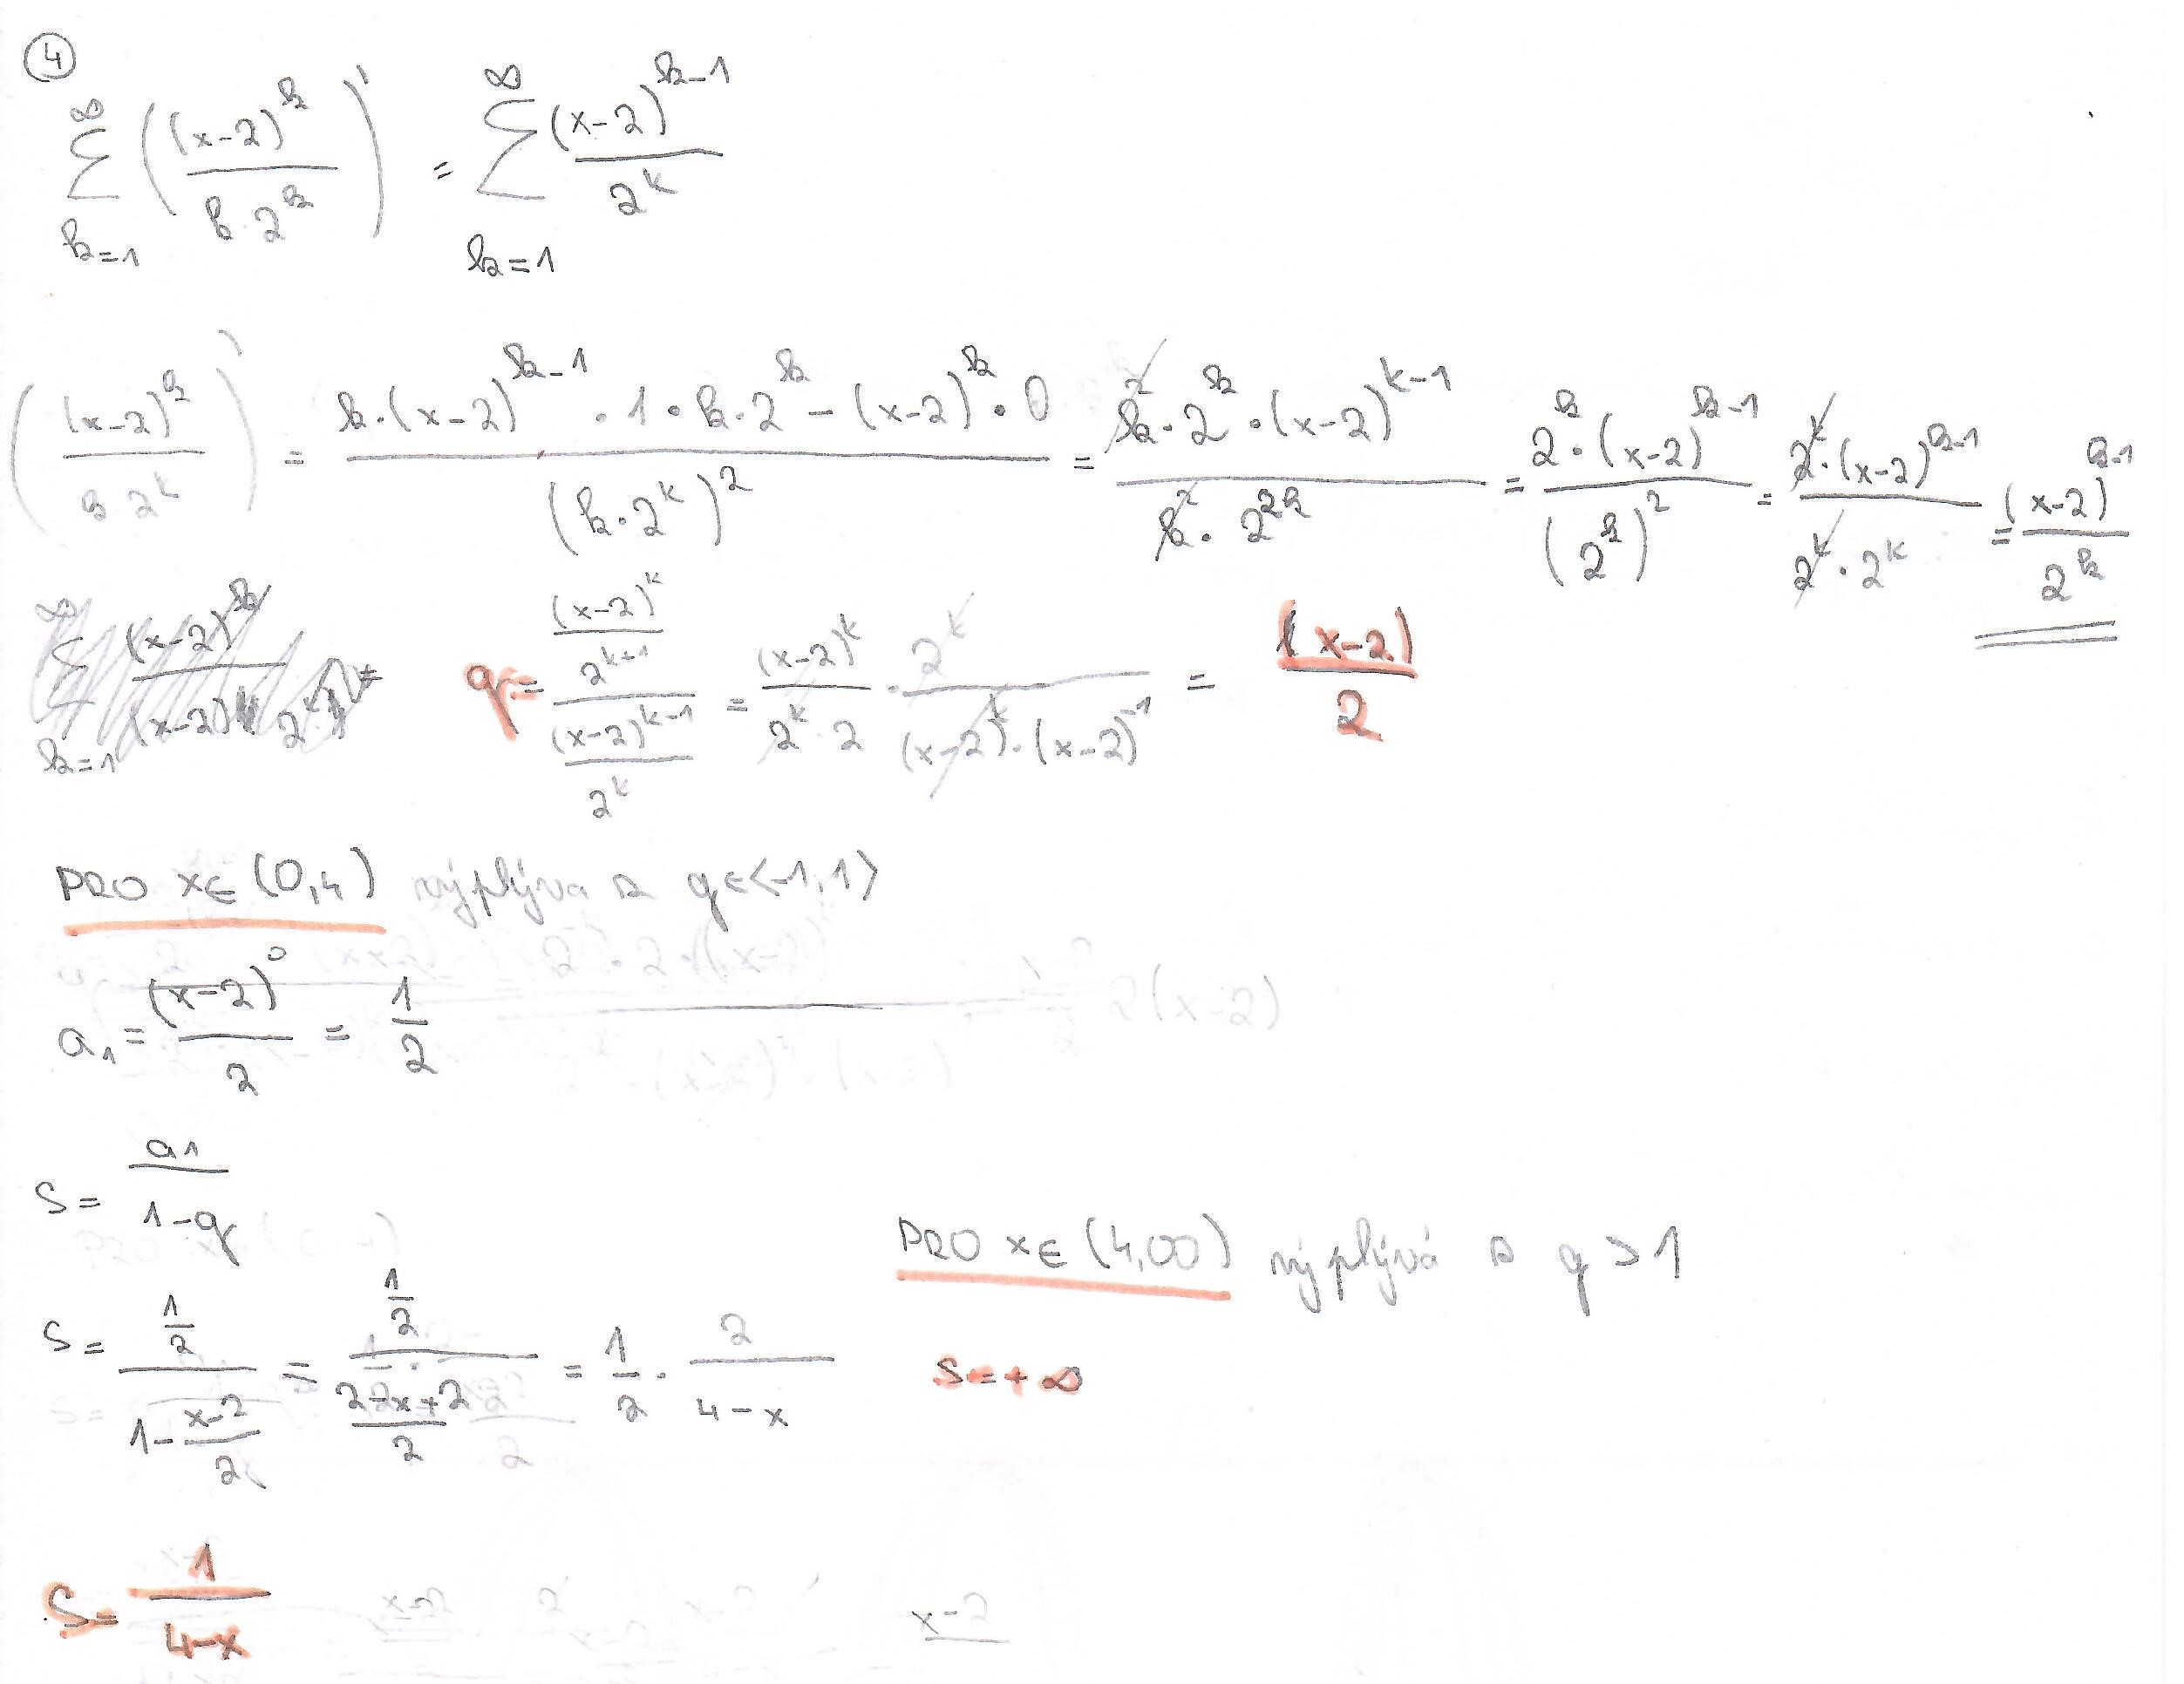 4
∞ ∑ k=1 ( (x-2)^k / k·2^k )' = ∞ ∑ k=1 (x-2)^(k-1) / 2^k
( (x-2)^k / k·2^k )' = k·(x-2)^(k-1) · 1 · k·2^k - (x-2)^k · 0 / (k·2^k)^2 = k^2·2^k·(x-2)^(k-1) / k^2·2^(2k) = 2^k·(x-2)^(k-1) / (2^k)^2 = 2^k·(x-2)^(k-1) / 2^k·2^k = (x-2)^(k-1) / 2^k
q = (x-2)^k / 2^(k+1) / (x-2)^(k-1) / 2^k = (x-2)^k / 2^k·2 · 2^k / (x-2)^k·(x-2)^-1 = (x-2) / 2
PRO x∈(0,4) vyplýva z q∈<-1,1>
a1 = (x-2)^0 / 2 = 1/2
S = a1 / 1-q
PRO x∈(4,∞) vyplývá z q > 1
S = 1/2 / 1 - x-2/2 = 1/2 / 2-x+2/2 = 1/2 · 2 / 4-x
S = +∞
S = 1 / 4-x
x-2